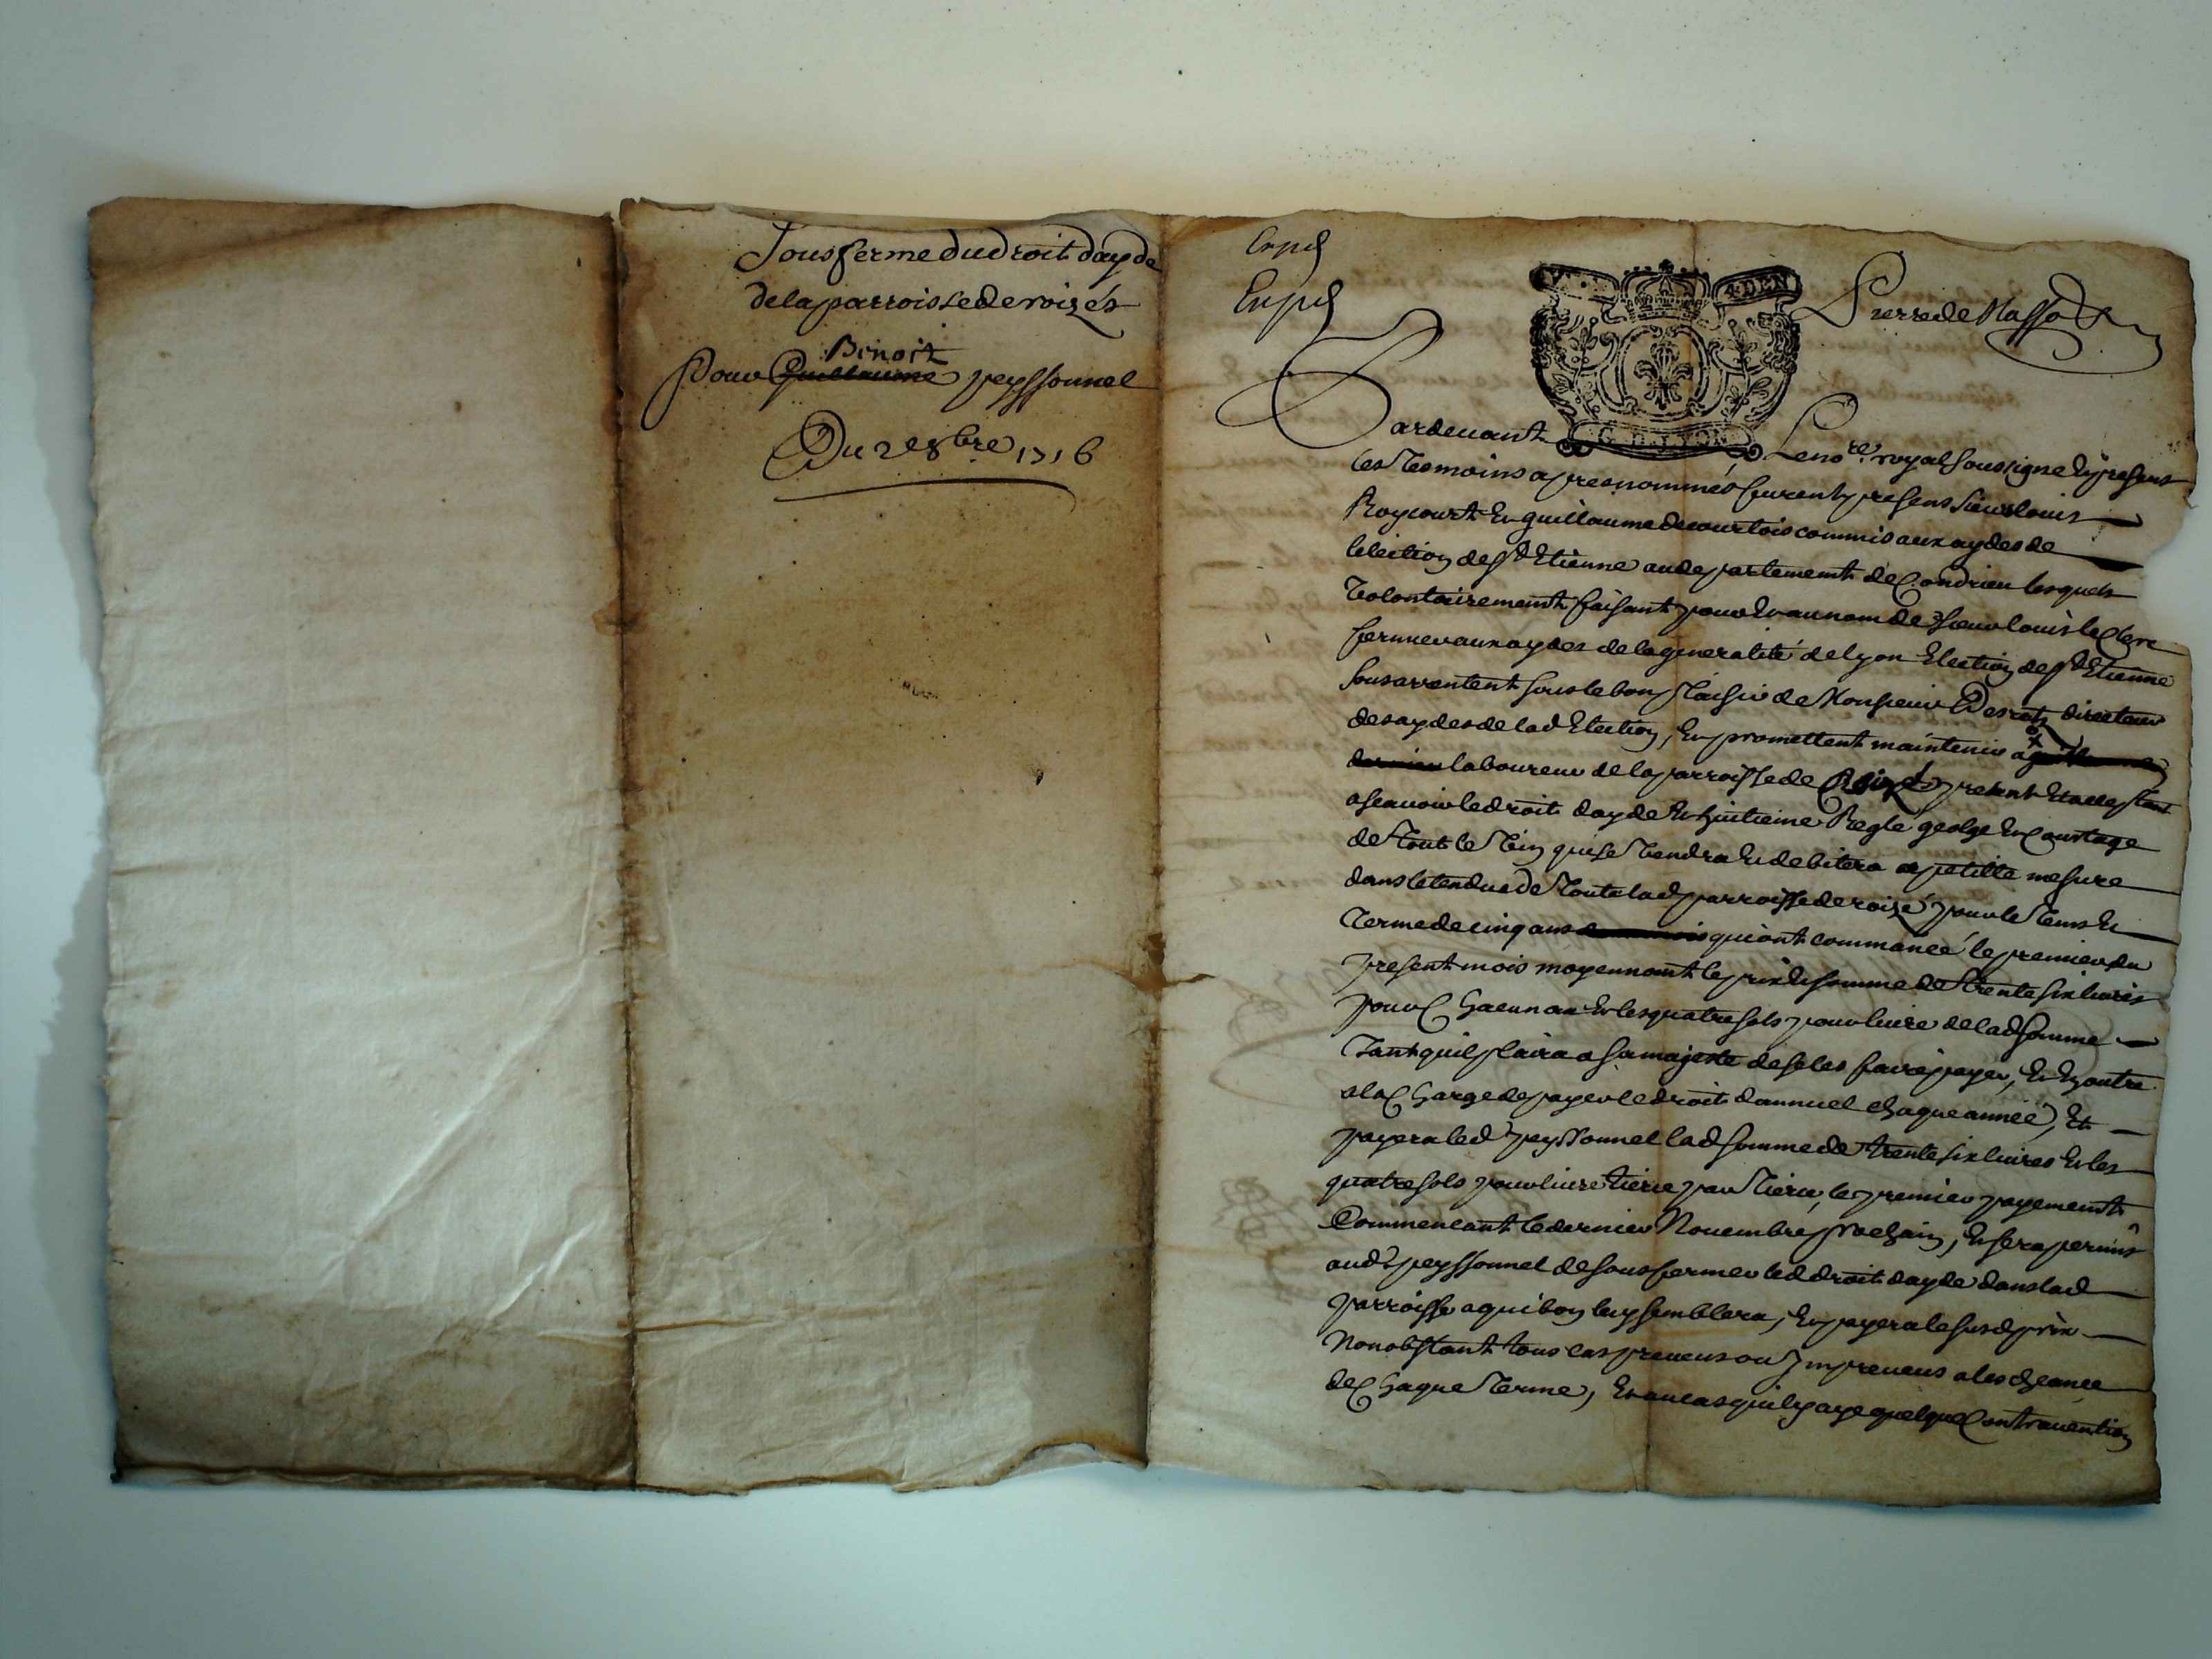 Sousferme du droit dayde
de la parroisse de roizés
Benoit
Pour Guillaume peyssonnel
Du 2e 8bre 1716
Exped
Exped
4 DEN
G. D. LYON
Pierre de Masso
Pardevant Le nore. royal soussigne et presens
les tesmoins apres nommés furent presens sieurs louis
Roycourt et guillaume decourtois commis aux aydes de
lelection de st Etienne au departement de Condrieu lesquels
volontairement faisant pour et au nom de sieur louis le Clerc
fermier aux aydes de la generalité de lyon Election de st Etienne
sousarrentent sous le bon plaisir de Monsieur Desretz directeur
des aydes de lad Election, et promettent maintenir a
laboureur de la parroisse de Roizé present et acceptant
a scavoir le droit dayde et huitieme Reglé geolge et Courtage
de tout le vin qui se vendra et debitera a petitte mesure
dans letendue de toute lad parroisse de roizé pour le tems et
terme de cinq ans qui ont commancé le premier du
present mois moyennant le prix et somme de trente six livres
pour Chacun an et les quatre sols pour livre de lad somme
tant quil plaira a sa majesté de se les faire payer, et en outre
a la Charge de payer le droit dannuel chaque année, et
payera led peyssonnel lad somme de trente six livres et les
quatre sols pour livre tierce par tierce, le premier payement
Commencant le dernier Novembre prochain, et sera permis
aud peyssonnel de sousfermer led droit dayde dans lad
parroisse a qui bon luy semblera, et payera le susd prix
Nonobstant tous cas preveus ou Impreveus a les cheance
de Chaque terme, et au cas quil y aye quelque Contravention